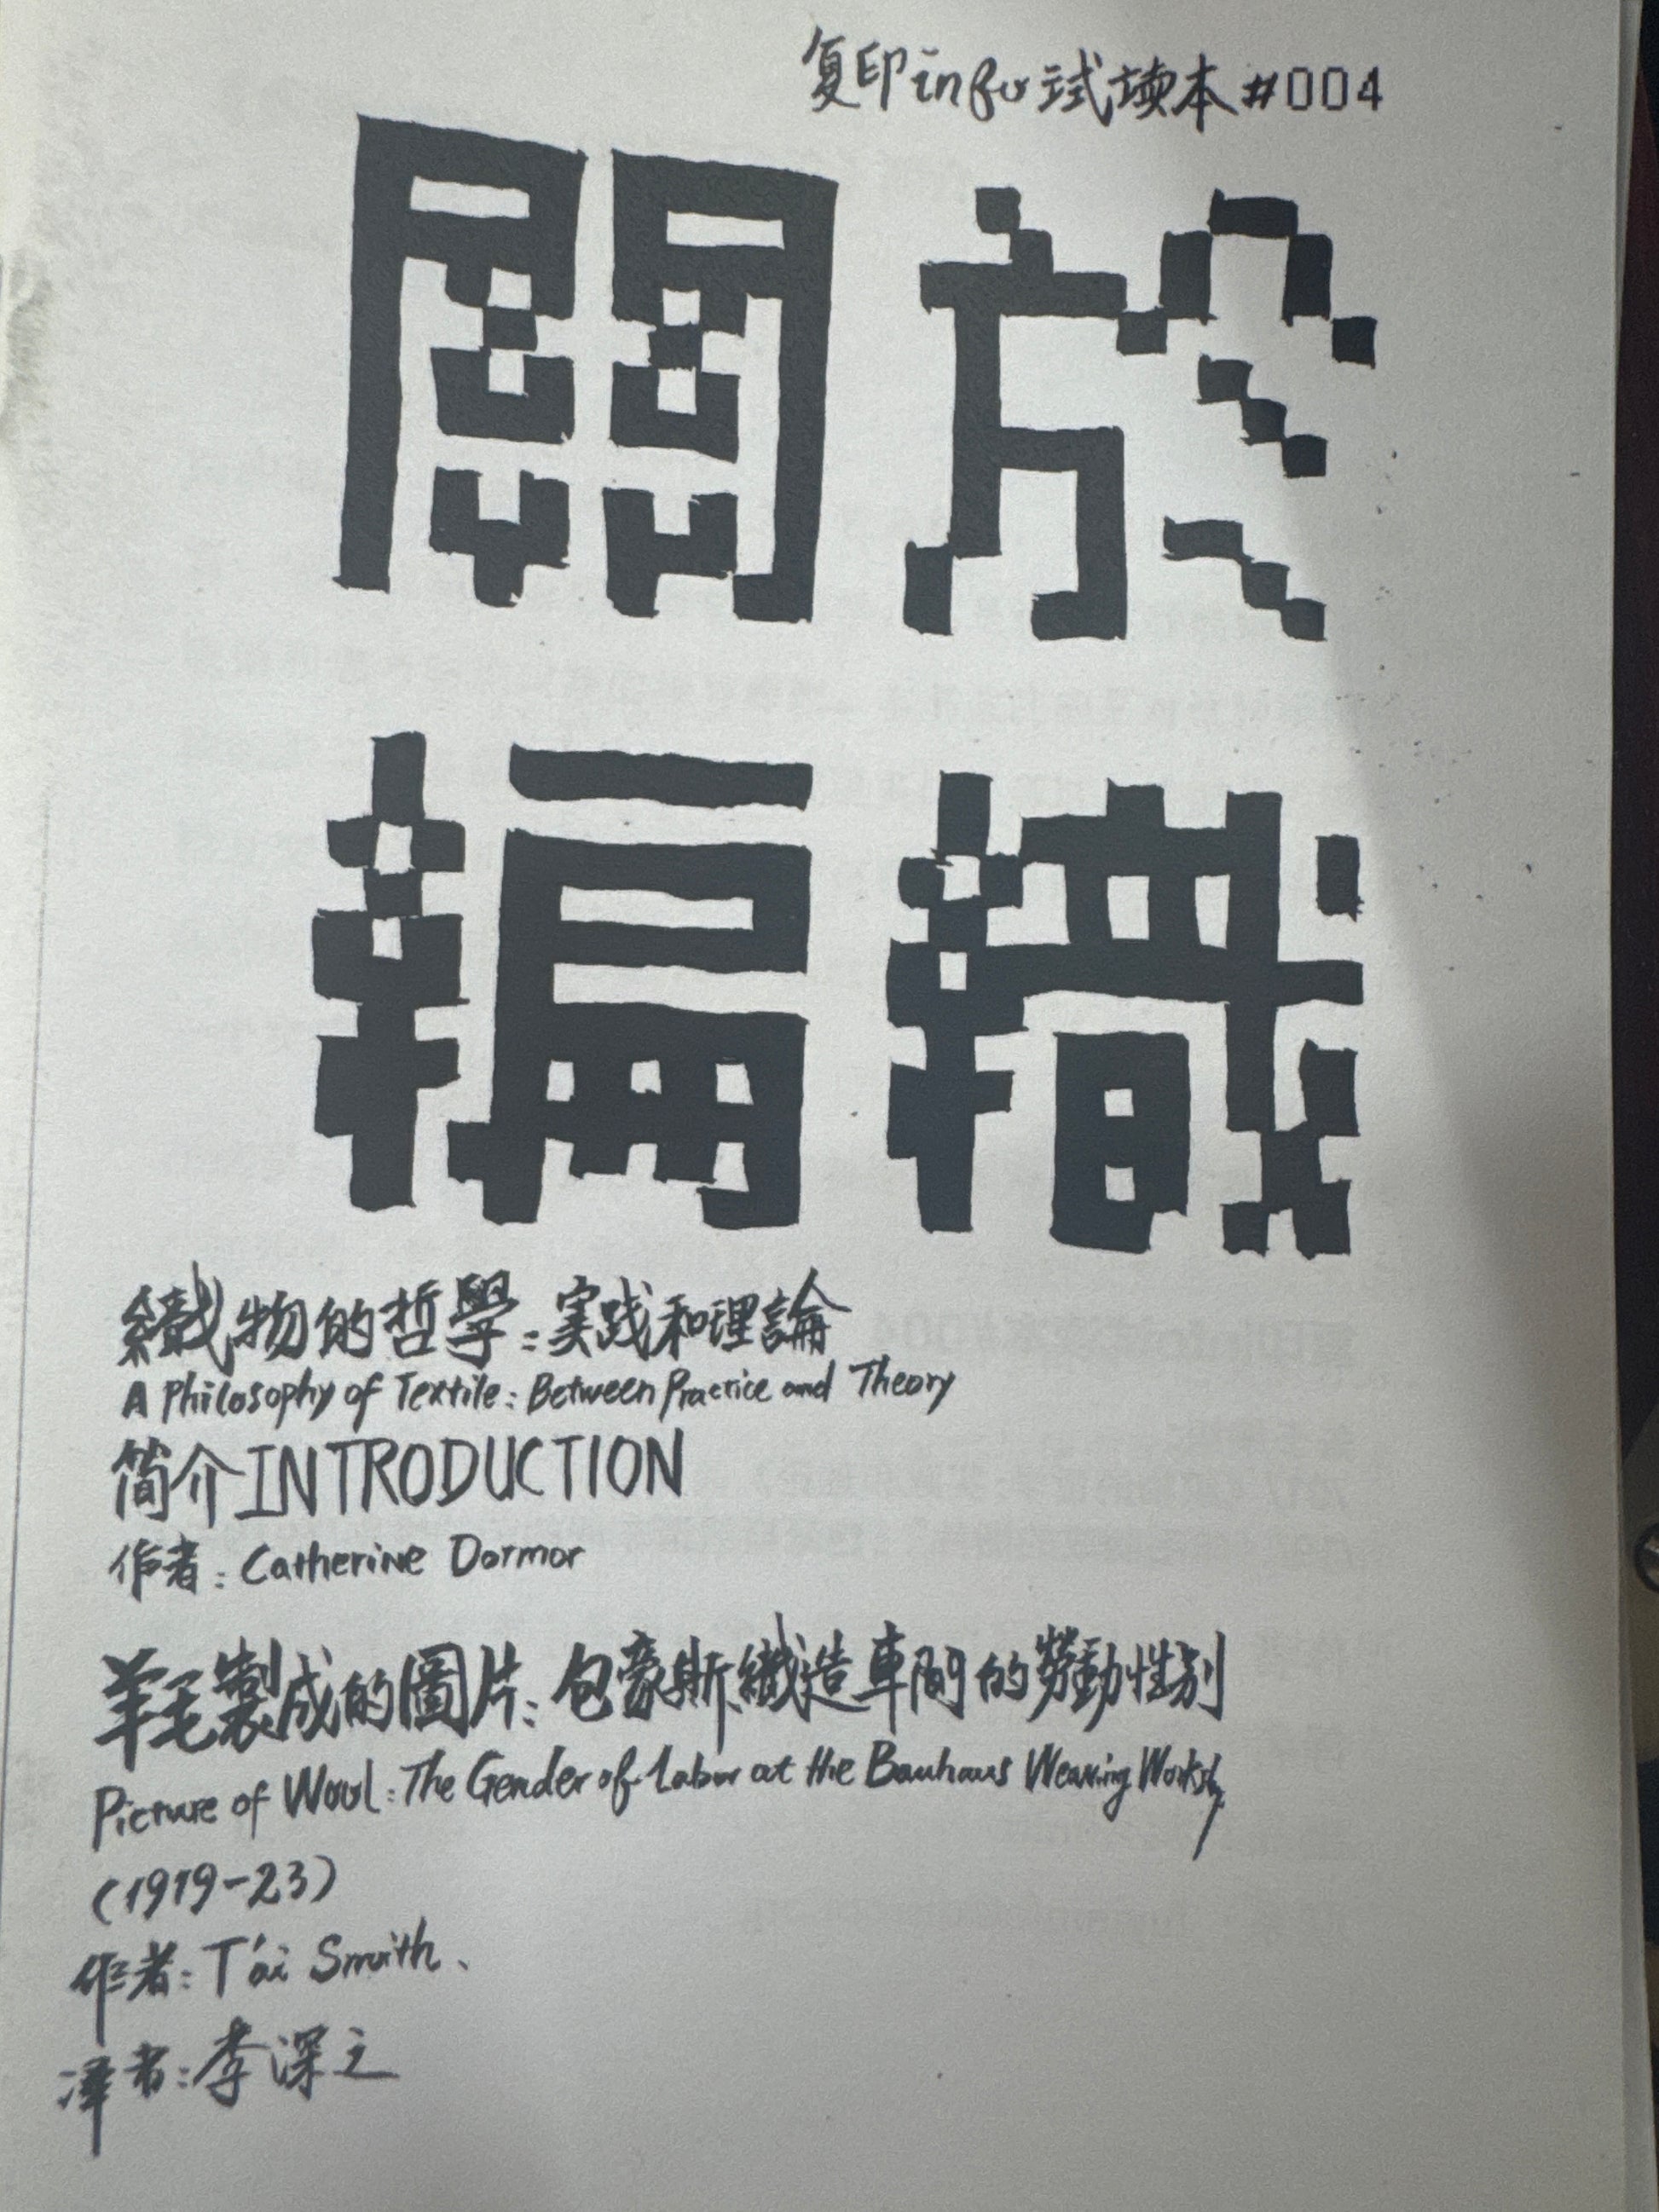 复印info试读本#004
關於
編織
織物的哲學:実践和理論
A Philosophy of Textile: Between Practice and Theory
简介INTRODUCTION
作者: Catherine Dormor
羊毛製成的圖片:包豪斯織造車間的勞動性別
Picture of Wool: The Gender of Labor at the Bauhaus Weaving Workshop
(1919-23)
作者: T'ai Smith、
譯者:李深之